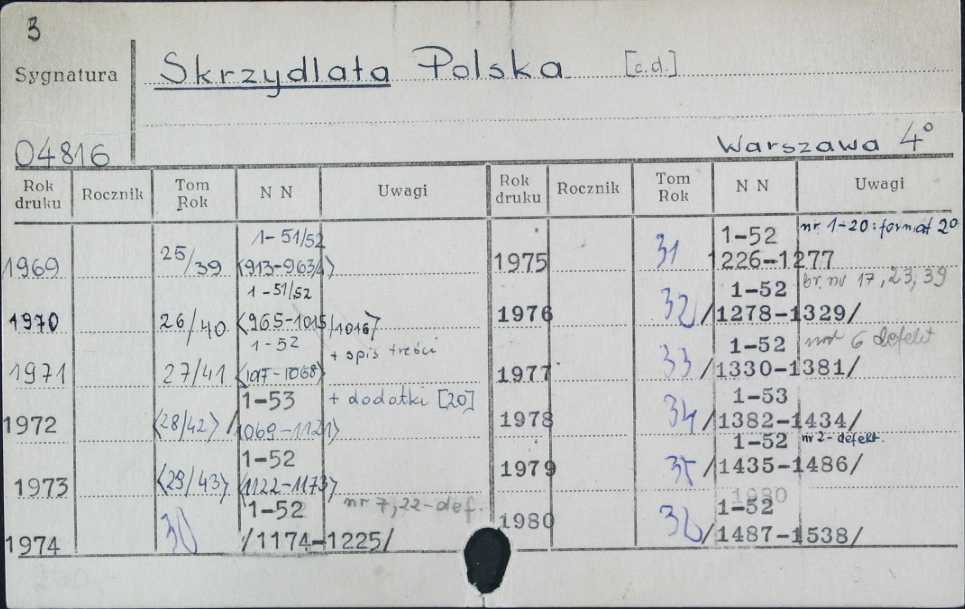 3
Sygnatura Skrzydlata Polska [c.d.]
04816 Warszawa 4°
Rok druku Rocznik Tom Rok N N Uwagi Rok druku Rocznik Tom Rok N N Uwagi
1969 25/39 1-51/52 <913-963/4>
1970 26/40 1-51/52 <965-1015/1016>
1971 27/41 1-52 <1017-1068> + spis treści
1972 <28/42> 1-53 /1069-1121> + dodatki [20]
1973 <29/43> 1-52 <1122-1173>
1974 30 1-52 /1174-1225/ nr 7,22-def.
1975 31 1-52 1226-1277 nr. 1-20: format 2°
1976 32 1-52 /1278-1329/ br. nr 17, 23, 39
1977 33 1-52 /1330-1381/ 6 defekt
1978 34 1-53 /1382-1434/
1979 35 1-52 /1435-1486/ nr 2-defekt.
1980 36 1980 1-52 /1487-1538/